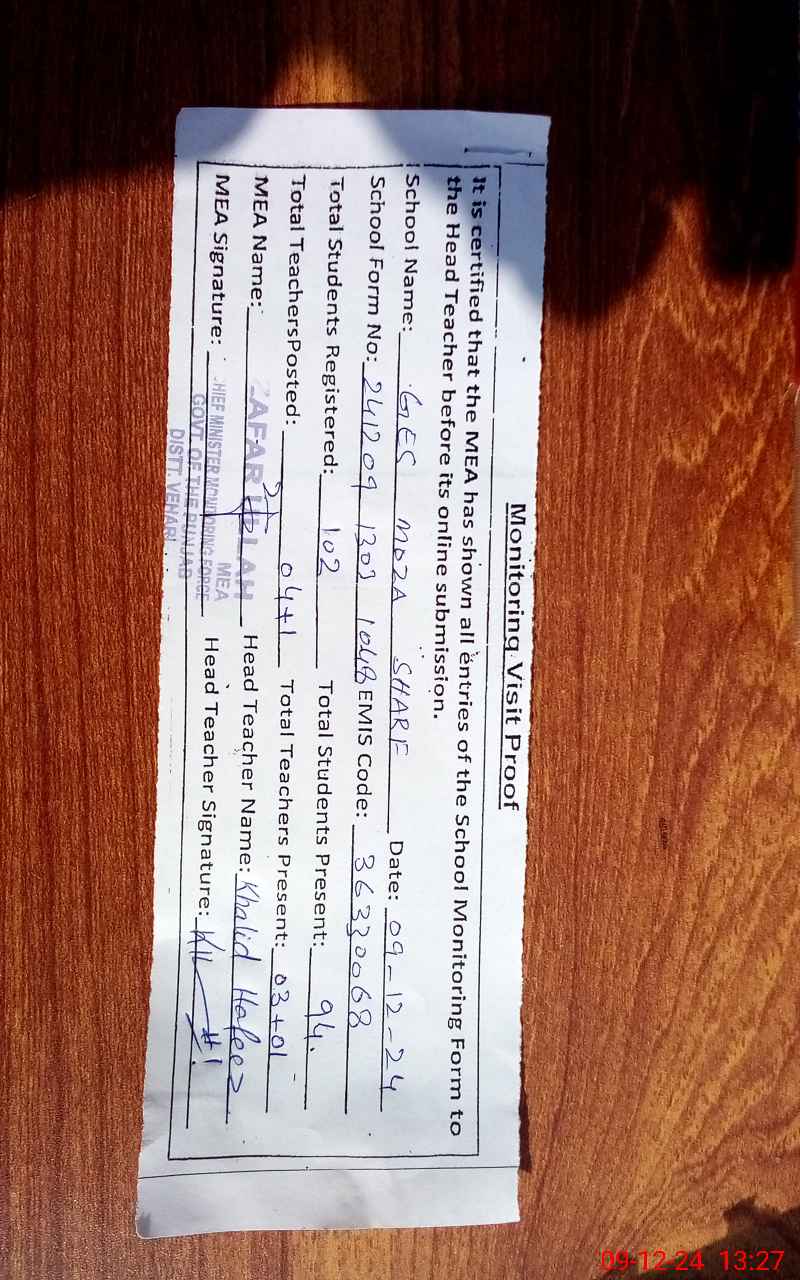 Monitoring Visit Proof
It is certified that the MEA has shown all entries of the School Monitoring Form to
the Head Teacher before its online submission.
School Name: GES MOZA SHARF Date: 09-12-24
School Form No: 241209 1303 1048 EMIS Code: 36330068
Total Students Registered: 102 Total Students Present: 94.
Total TeachersPosted: 04+1 Total Teachers Present: 03+01
MEA Name: ZAFAR ULLAH Head Teacher Name: Khalid Hafeez
MEA
MEA Signature: CHIEF MINISTER MONITORING FORCE Head Teacher Signature:
GOVT. OF THE PUNJAB
DISTT. VEHARI
09-12-24 13:27